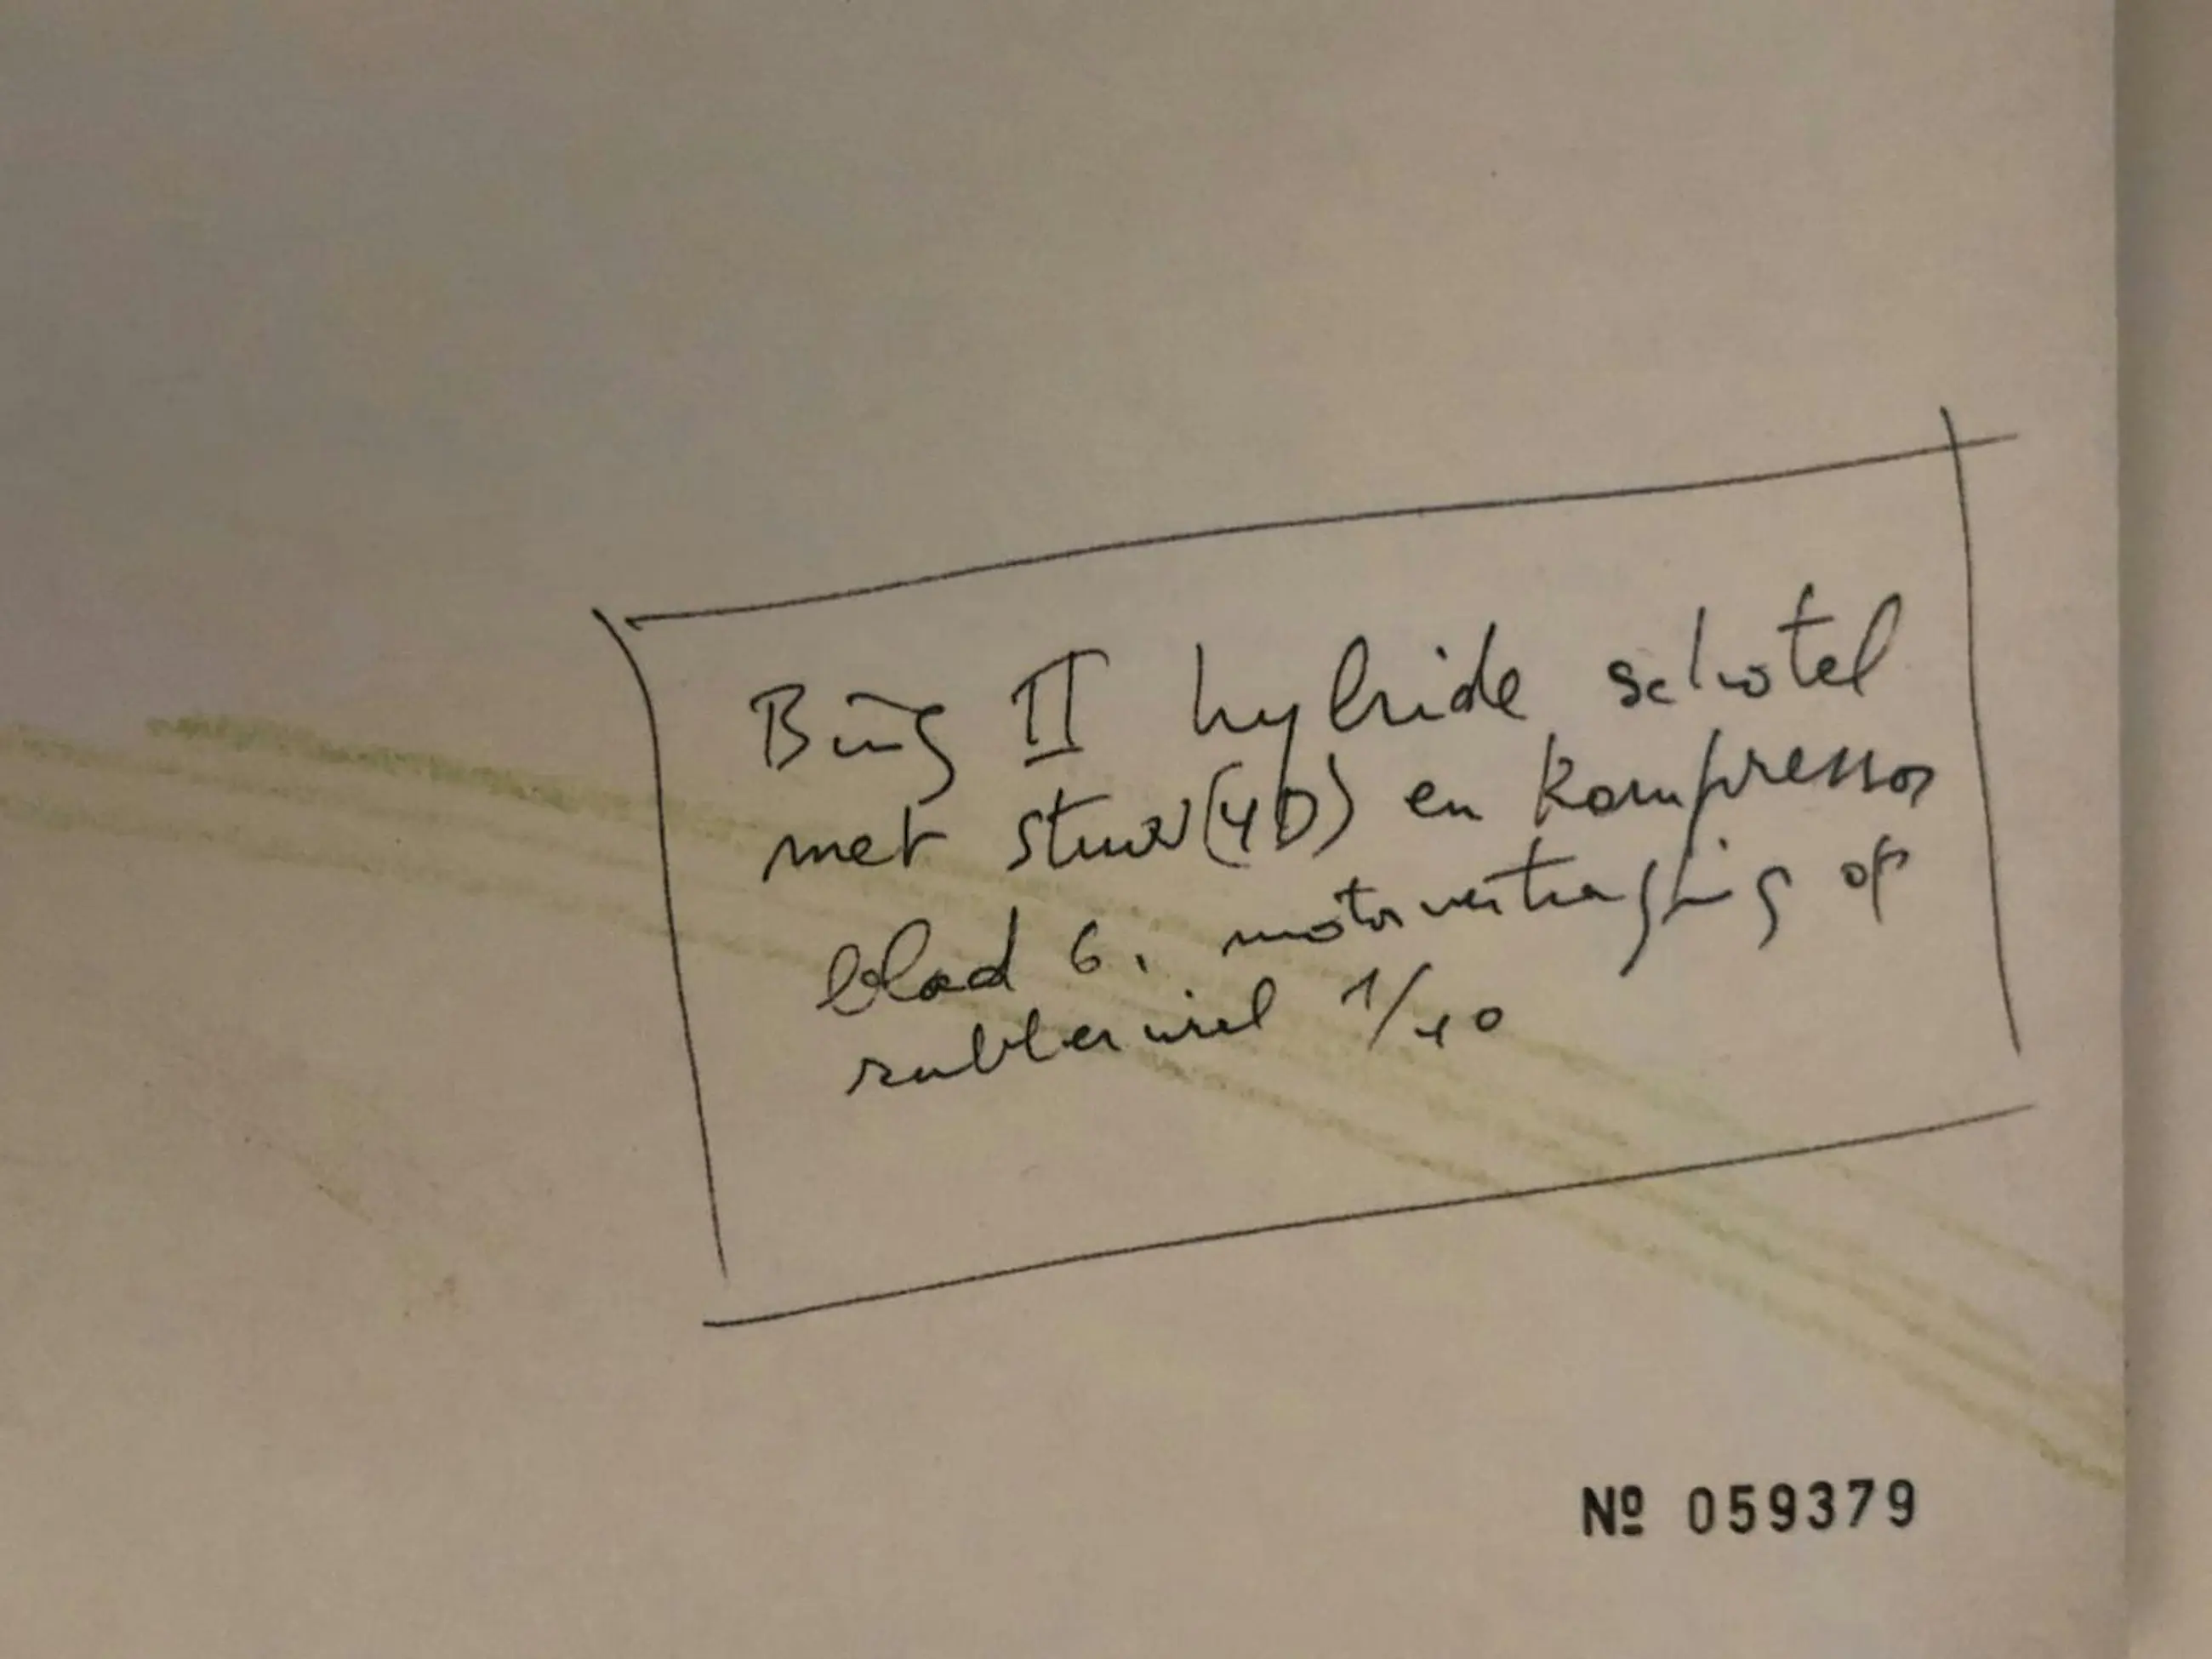 Bing II hybride schotel
met stuur (4D) en kompressor
blad 6. motorvertraging op
rubberwiel 1/40
Nº 059379